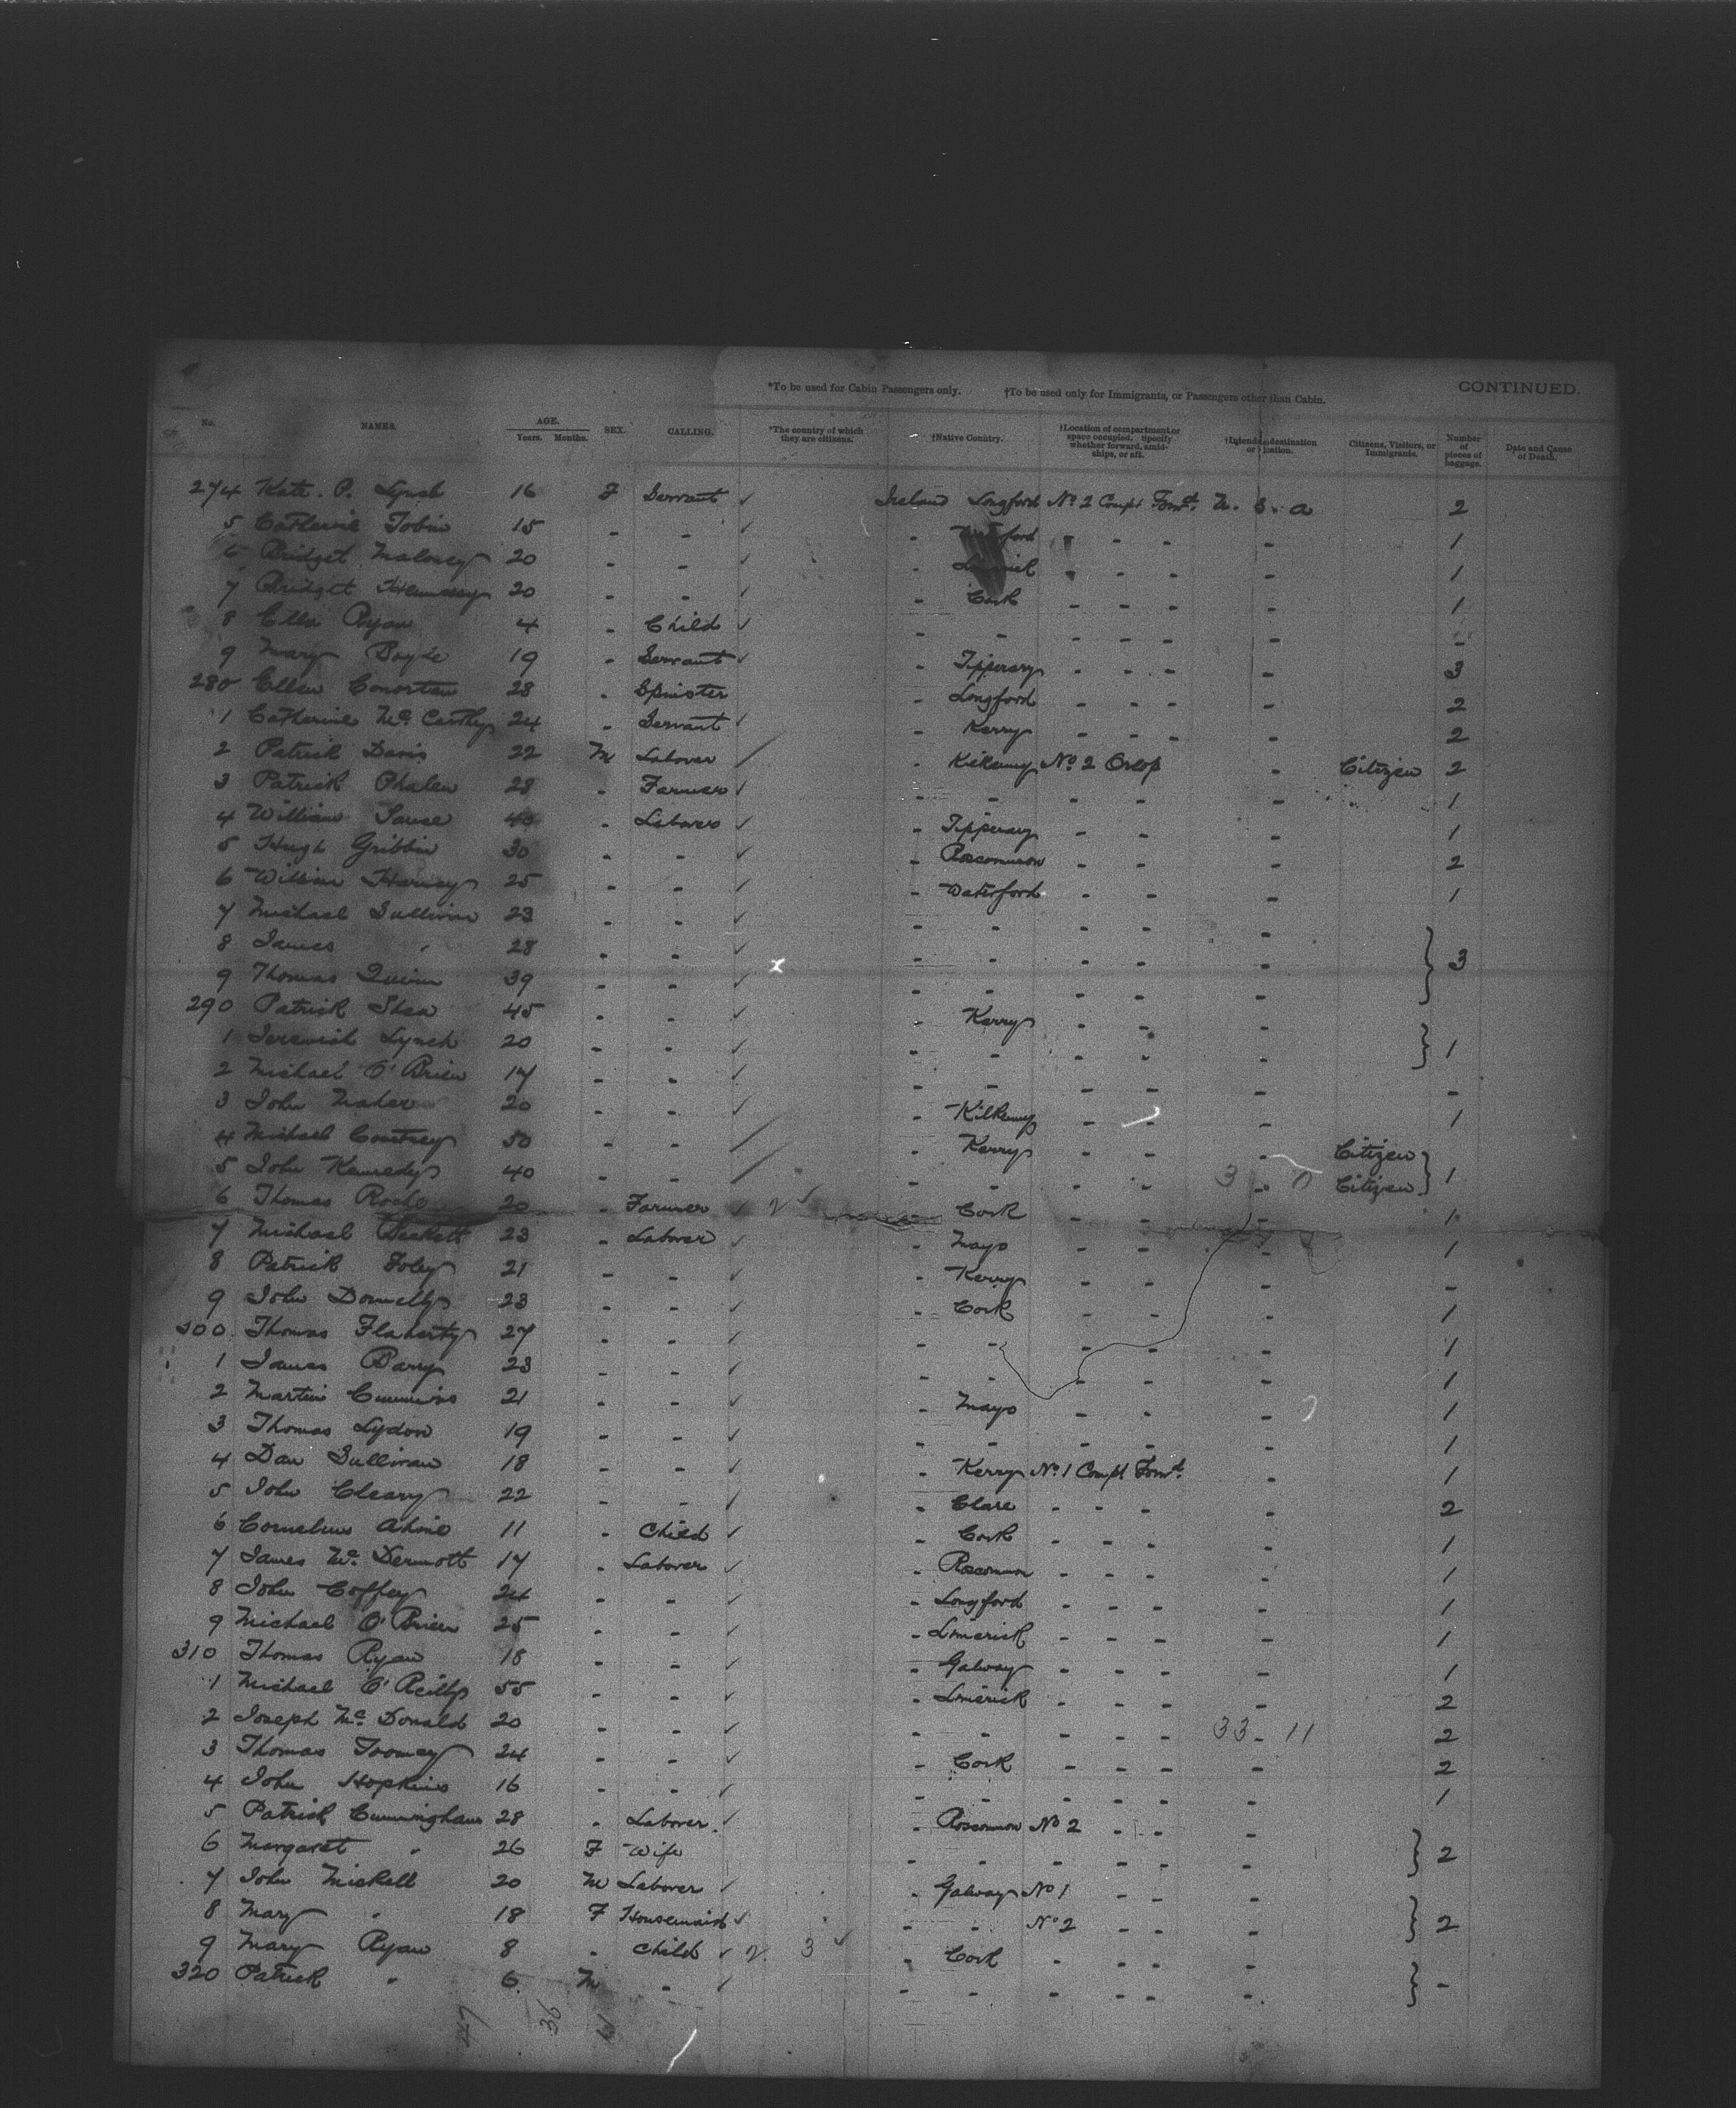 *To be used for Cabin Passengers only. †To be used only for Immigrants, or Passengers other than Cabin. CONTINUED.
No. NAMES. AGE. Years. Months. SEX. CALLING. *The country of which they are citizens. †Native Country. †Location of compartment or space occupied. Specify whether forward, amidships, or aft. †Intended destination or location. Citizens, Visitors, or Immigrants. Number of pieces of baggage. Date and Cause of Death.
274 Kate. P. Lynch 16 F Servant ✓ Ireland Longford No 2 Compt Forwd. U. S. A 2
5 Catherine Tobin 15 - - ✓ - - - - - 1
6 Bridget Maloney 20 - - ✓ - Limerick - - - - 1
7 Bridget Hennessy 20 - - ✓ - Cork - - - - 1
8 Ella Ryan 4 - Child ✓ - - - - - - -
9 Mary Boyle 19 - Servant ✓ - Tipperary - - - - 3
280 Ellen 28 - Spinster - Longford - - - - 2
1 Catherine Mc Carthy 24 - Servant ✓ - Kerry - - - - 2
2 Patrick Davis 22 M Laborer / - Kilkenny No 2 Orlop - Citizen 2
3 Patrick Phalen 28 - Farmer ✓ - - - - - 1
4 William 40 - Laborer ✓ - Tipperary - - - 1
5 Hugh Gribbin 30 - - ✓ - Roscommon - - - 2
6 William Harvey 25 - - ✓ - Waterford - - - 1
7 Michael Sullivan 23 - - ✓ - - - - -
8 James " 28 - - ✓ - - - - - } 3
9 Thomas Quinn 39 - - ✓ - - - - -
290 Patrick Shea 45 - - ✓ - Kerry - - -
1 Jeremiah Lynch 20 - - ✓ - - - - - } 1
2 Michael O'Brien 17 - - ✓ - - - - - -
3 John Maher 20 - - ✓ - Kilkenny - - - 1
4 Michael Courtney 50 - - / - Kerry - - - Citizen
5 John Kennedy 40 - - / - - - - 3 - 0 Citizen } 1
6 Thomas Roche 20 - Farmer ✓ 2 ✓ - Cork - - - 1
7 Michael 23 - Laborer ✓ - Mayo - - - 1
8 Patrick Foley 21 - - ✓ - Kerry - - - -
9 John Donnelly 23 - - ✓ - Cork - - - 1
300 Thomas Flaherty 27 - - ✓ - - - - - 1
1 James Barry 23 - - ✓ - - - - - 1
2 Martin Cummins 21 - - ✓ - Mayo - - - 1
3 Thomas Lydon 19 - - ✓ - - - - - 1
4 Dan Sullivan 18 - - ✓ - Kerry No 1 Compt Forwd. - 1
5 John Cleary 22 - - ✓ - Clare - - - - 2
6 Cornelius Ahine 11 - Child ✓ - Cork - - - - 1
7 James Mc. Dermott 17 - Laborer ✓ - Roscommon - - - - 1
8 John Coffey 24 - - ✓ - Longford - - - - 1
9 Michael O'Brien 25 - - ✓ - Limerick - - - - 1
310 Thomas Ryan 18 - - ✓ - Galway - - - - 1
1 Michael O'Reilly 55 - - ✓ - Limerick - - - - 2
2 Joseph Mc Donald 20 - - ✓ - - - - - 33 - 11 2
3 Thomas Toomey 24 - - ✓ - Cork - - - - 2
4 John Hopkins 16 - - ✓ - - - - - - 1
5 Patrick Cunningham 28 - Laborer. ✓ - Roscommon No 2 - - -
6 Margaret " 26 F Wife - - - - - - } 2
7 John Miskell 20 M Laborer ✓ - Galway No 1 - - -
8 Mary " 18 F Housemaid ✓ - - No 2 - - - } 2
9 Mary Ryan 8 - Child ✓ 2 3 ✓ - Cork - - - -
320 Patrick " 6 M - ✓ - - - - - - } -
36